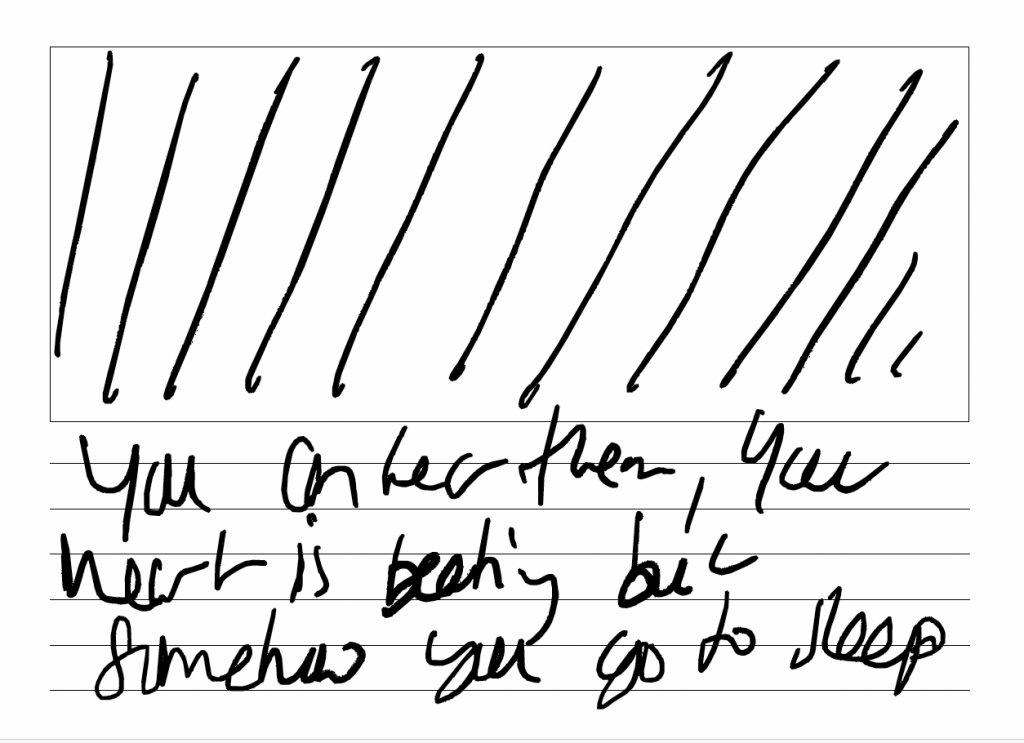 you can hear them, your
heart is beating but
somehow you go to sleep